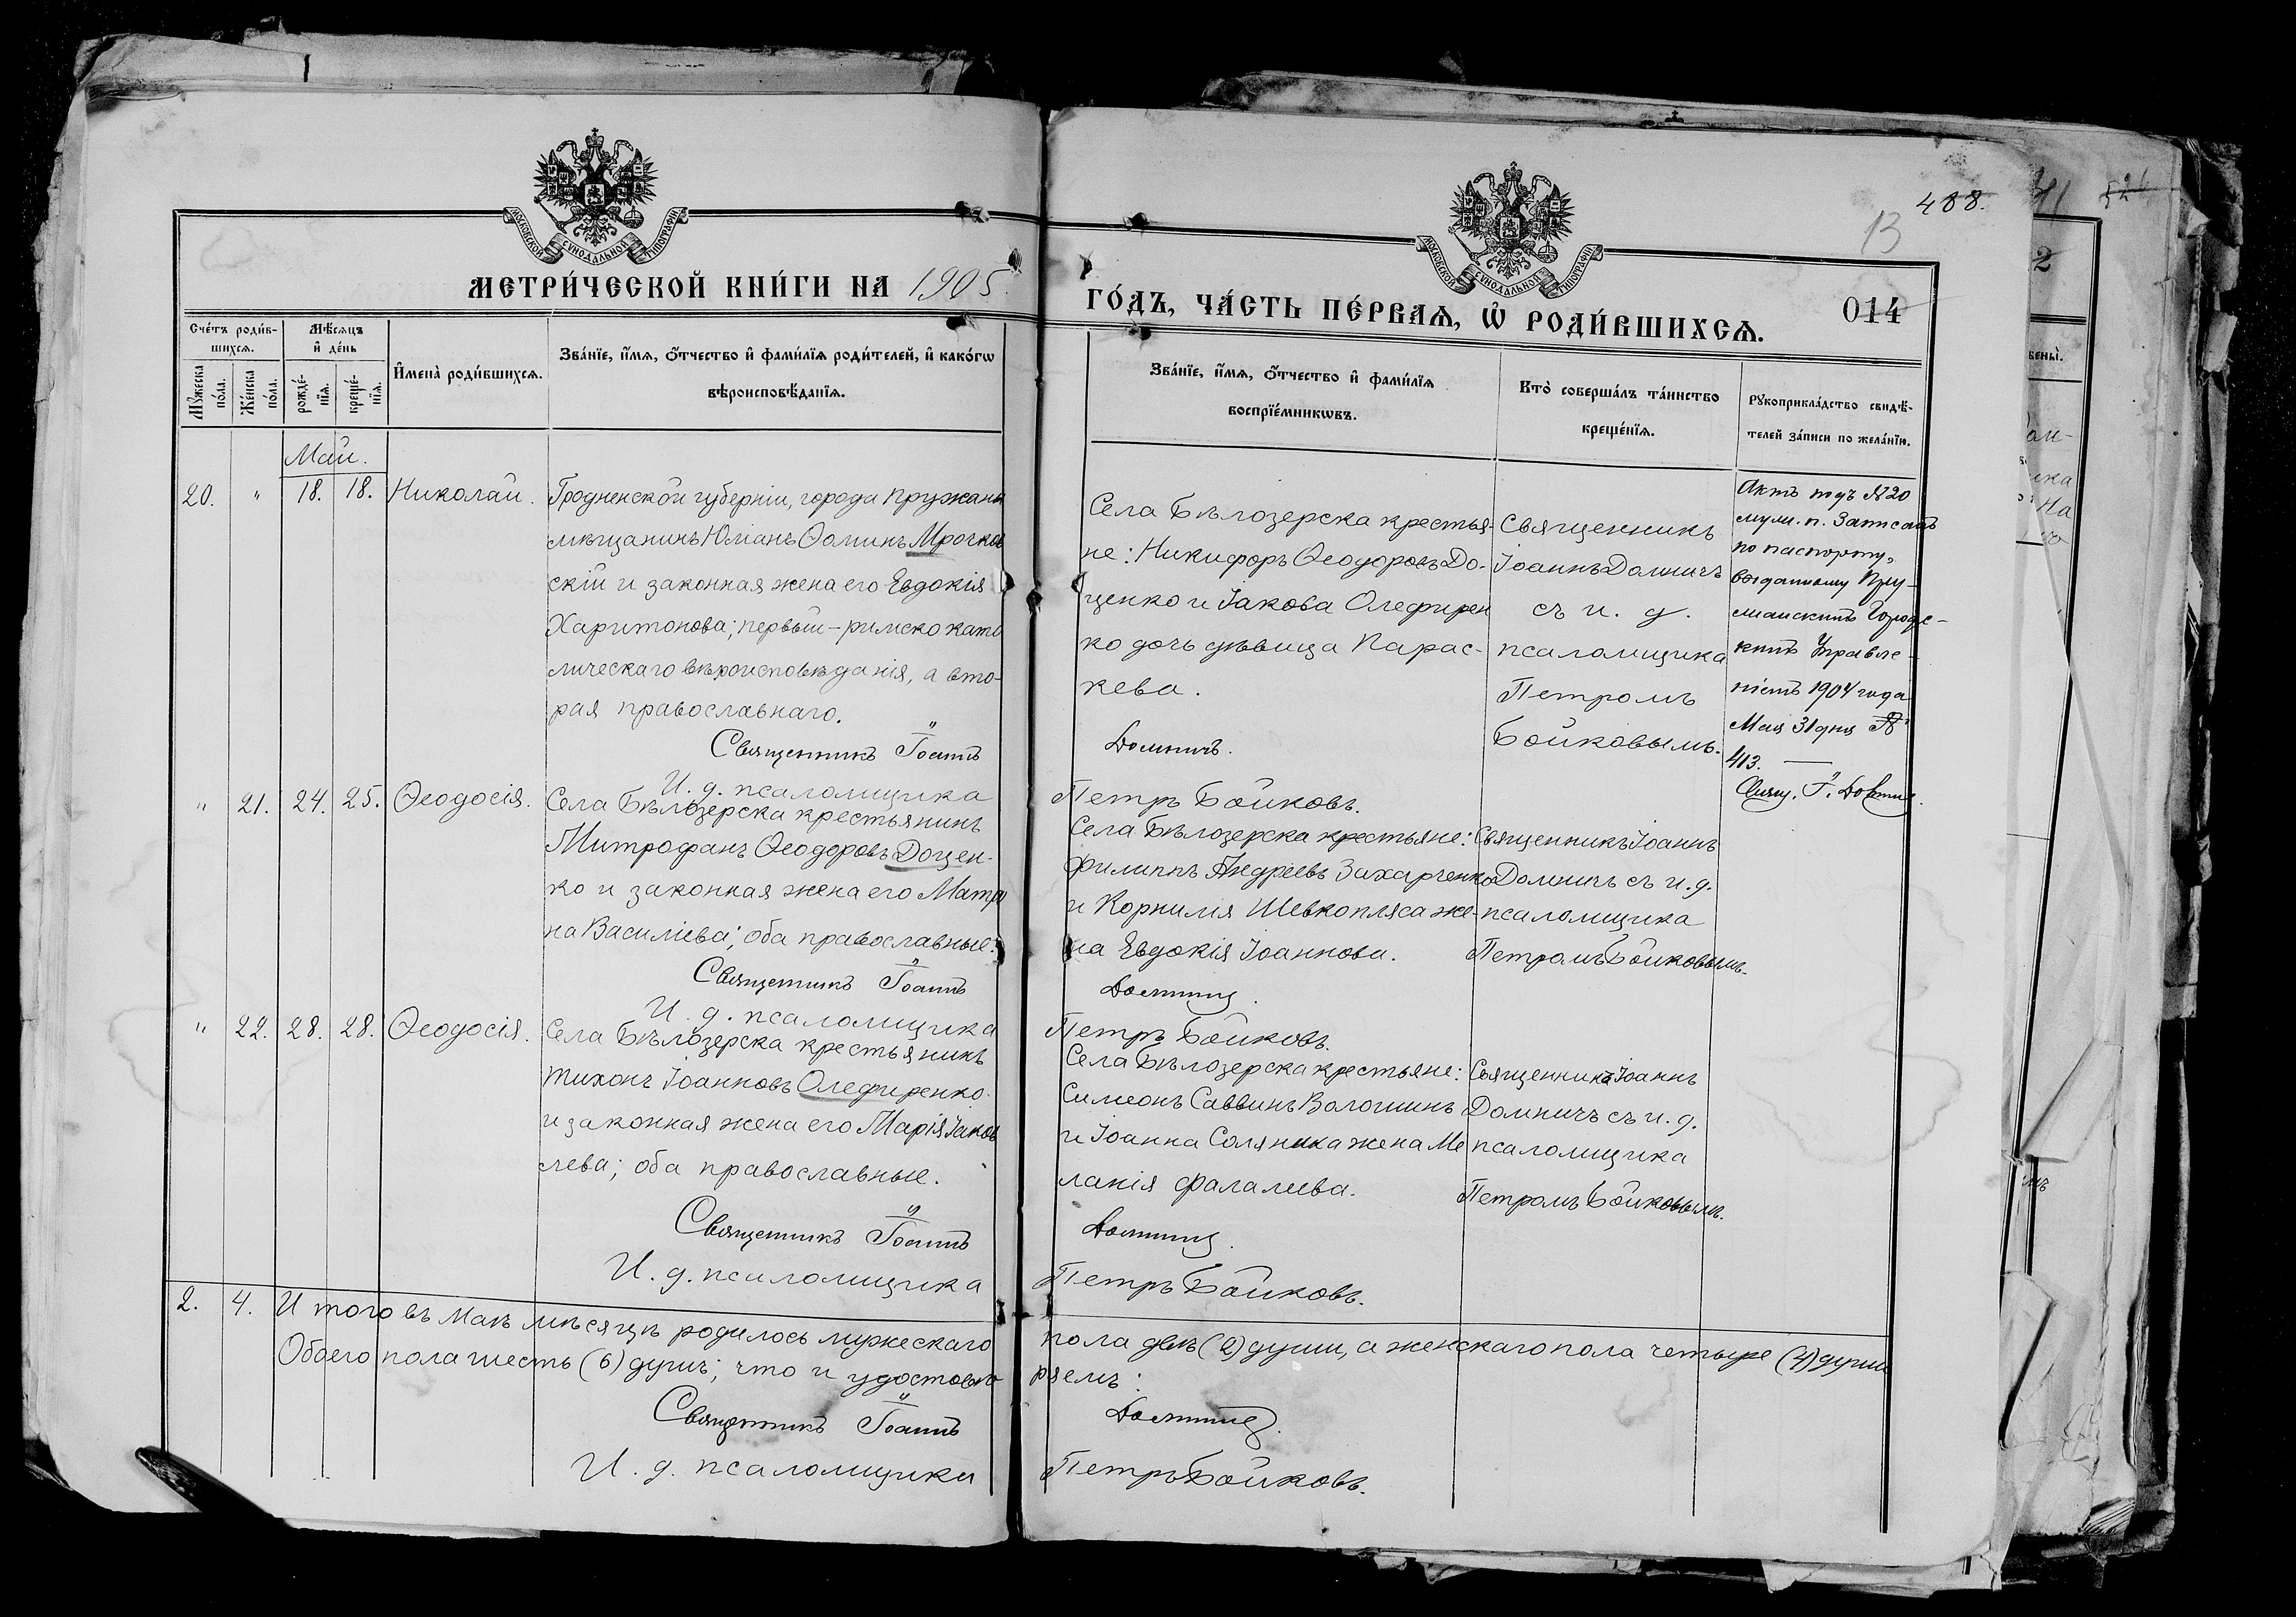 488.
13
МОСКОВСКОЙ СѴНОДАЛЬНОЙ ТИПОГРАФІИ
МОСКОВСКОЙ СѴНОДАЛЬНОЙ ТИПОГРАФІИ
МЕТРИ́ЧЕСКОЙ КНИ́ГИ НА 1905
ГО́ДЪ, ЧА́СТЬ ПЕ́РВАѦ, Ѡ҆ РОДИ́ВШИХСѦ.
014
Сче́тъ роди́в-
шихсѧ.
Мѣ́сѧцъ
и҆ де́нь
Мꙋ́жеска
по́ла.
Же́нска
по́ла.
рожде́-
нїѧ.
креще́-
нїѧ.
И҆мена̀ роди́вшихсѧ.
Зва́нїе, и҆́мѧ, ѻ҆́тчество и҆ фами́лїѧ роди́телей, и҆ како́гѡ
вѣроисповѣ́данїѧ.
Зва́нїе, и҆́мѧ, ѻ҆́тчество и҆ фами́лїѧ
воспрїе́мникѡвъ.
Кто̀ соверша́лъ та́инство
креще́нїѧ.
Рꙋкоприкла́дство свидѣ́-
телей за́писи по жела́нїю.
Май.
20. " 18. 18. Николай.
Гродненской губерніи, города Пружанъ
мѣщанинъ Юліанъ Ѳоминъ Мрочков
скій и законная жена его Евдокія
Харитонова; первый – римско като
лическаго вѣроисповѣданія, а вто-
рая православнаго.
Священникъ Іоаннъ
И. д. псаломщика
Села Бѣлозерска крестья-
не: Никифоръ Ѳеодоровъ До-
ценко и Іакова Олефирен
ко дочь дѣвица Парас-
кева.
Домничъ.
Петръ Бойковъ.
Священникъ
Іоаннъ Домничъ
съ и. д.
псаломщика
Петромъ
Бойковымъ.
Актъ подъ № 20
муж. п. Записанъ
по паспорту,
выданному Пру-
жанскимъ Городс-
кимъ Управле-
ніемъ 1904 года
Мая 31 дня №
413. —
Свящ. І. Домнич.
" 21. 24. 25. Ѳеодосія.
Села Бѣлозерска крестьянинъ
Митрофанъ Ѳеодоровъ Доцен-
ко и законная жена его Матро
на Василіева; оба православные.
Священникъ Іоаннъ
И. д. псаломщика
Села Бѣлозерска крестьяне:
Филиппъ Андреевъ Захарченко
и Корнилія Шевкопляса же-
на Евдокія Іоаннова.
Домнич.
Петръ Бойковъ.
Священникъ Іоаннъ
Домничъ съ и. д.
псаломщика
Петромъ Бойковымъ.
" 22. 28. 28. Ѳеодосія.
Села Бѣлозерска крестьянинъ
Тихонъ Іоанновъ Олефиренко
и законная жена его Марія Іаков
лева; оба православные.
Священникъ Іоаннъ
И. д. псаломщика
Села Бѣлозерска крестьяне:
Симеонъ Саввинъ Волошинъ
и Іоанна Соляника жена Ме
ланія Фалалеева.
Домнич.
Петръ Бойковъ.
Священникъ Іоаннъ
Домничъ съ и. д.
псаломщика
Петромъ Бойковымъ.
2. 4. И того въ Маѣ мѣсяцѣ родилось мужескаго пола двѣ (2) души, а женскаго пола четыре (4) души
Обоего пола шесть (6) душъ; что и удостовѣ ряемъ:
Священникъ Іоаннъ Домнич.
И. д. псаломщика Петръ Бойковъ.